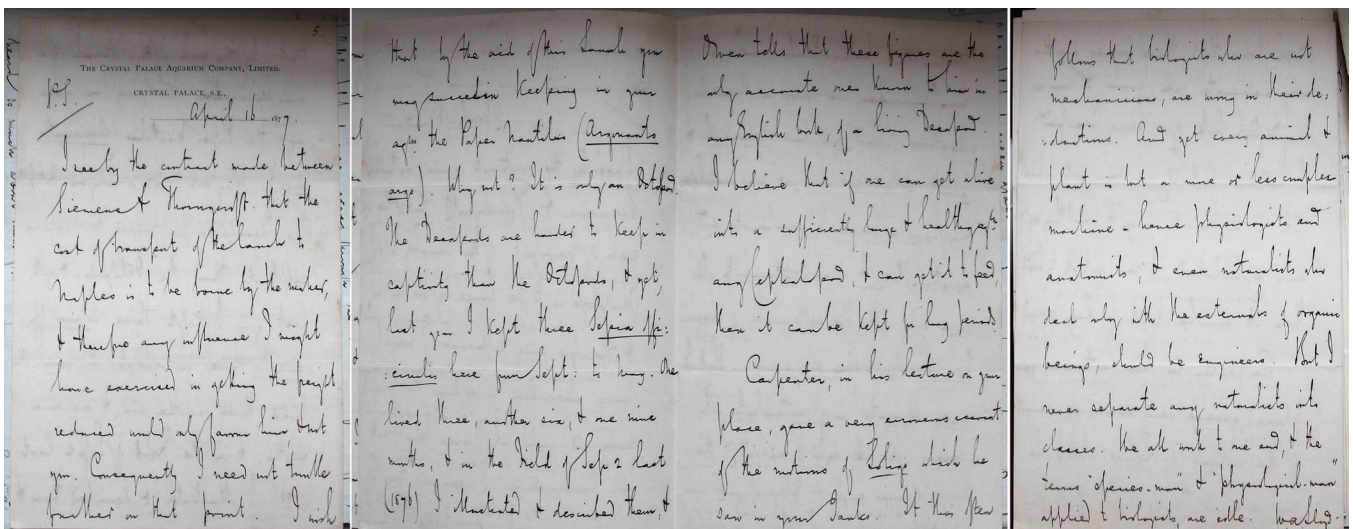 5.
THE CRYSTAL PALACE AQUARIUM COMPANY, LIMITED.
CRYSTAL PALACE, S.E.,
P.S.
April 16 1877.
I see by the contract made between
Siemens & Thornycroft that the
cost of transport of the launch to
Naples is to be borne by the maker,
& therefore any influence I might
have exercised in getting the freight
reduced would only favour him, & not
you. Consequently I need not trouble
further on that point. I wish
that by the aid of this launch you
may succeed in keeping in your
aqm the Paper Nautilus (Argonauta
argo). Why not? It is only an Octopod.
The Decapods are harder to keep in
captivity than the Octopods, & yet,
last year I kept three Sepia offi:
:cinalis here from Sept: to . One
lived three, another six, & one nine
months, & in the Field of Sep 2 last
(1876) I illustrated & described them, &
Owen tells that these figures are the
only accurate ones known to him in
any English book, of a living Decapod.
I believe that if one can get alive
into a sufficiently large & healthy aqm
any Cephalopod, & can get it to feed,
then it can be kept for long periods.
Carpenter, in his lecture on your
place, gave a very erroneous account
of the motions of Loligo which he
saw in your Tanks. It thus often
follows that biologists who are not
mechanicians, are wrong in their de:
:ductions. And yet every animal &
plant is but a more or less complex
machine - hence physiologists and
anatomists, & even naturalists who
deal only with the externals of organic
beings, should be engineers. But I
never separate any naturalists into
classes. We all work to one end, & the
terms "species-man" & "physiological-man"
applied to biologists are idle.